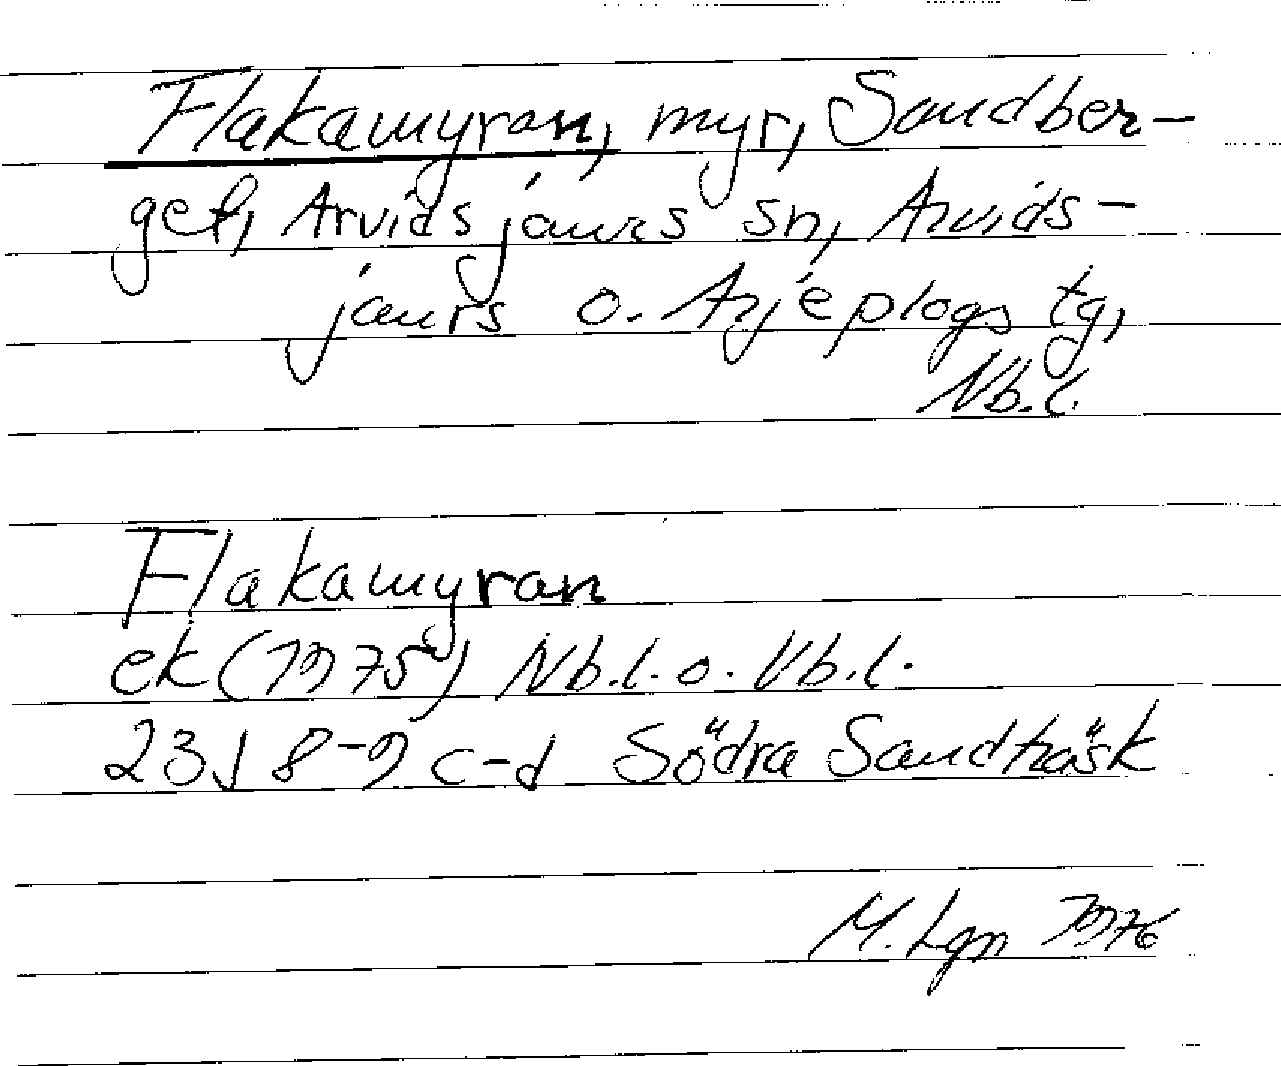 Flakamyran, myr, Sandber-
get, Arvidsjaurs sn, Arvids-
jaurs o. Arjeplogs tg,
Nb.l.
Flakamyran
ek (1975) Nb.l. o. Vb.l.
23J 8-9 c-d Södra Sandträsk
M. Lgn 1976